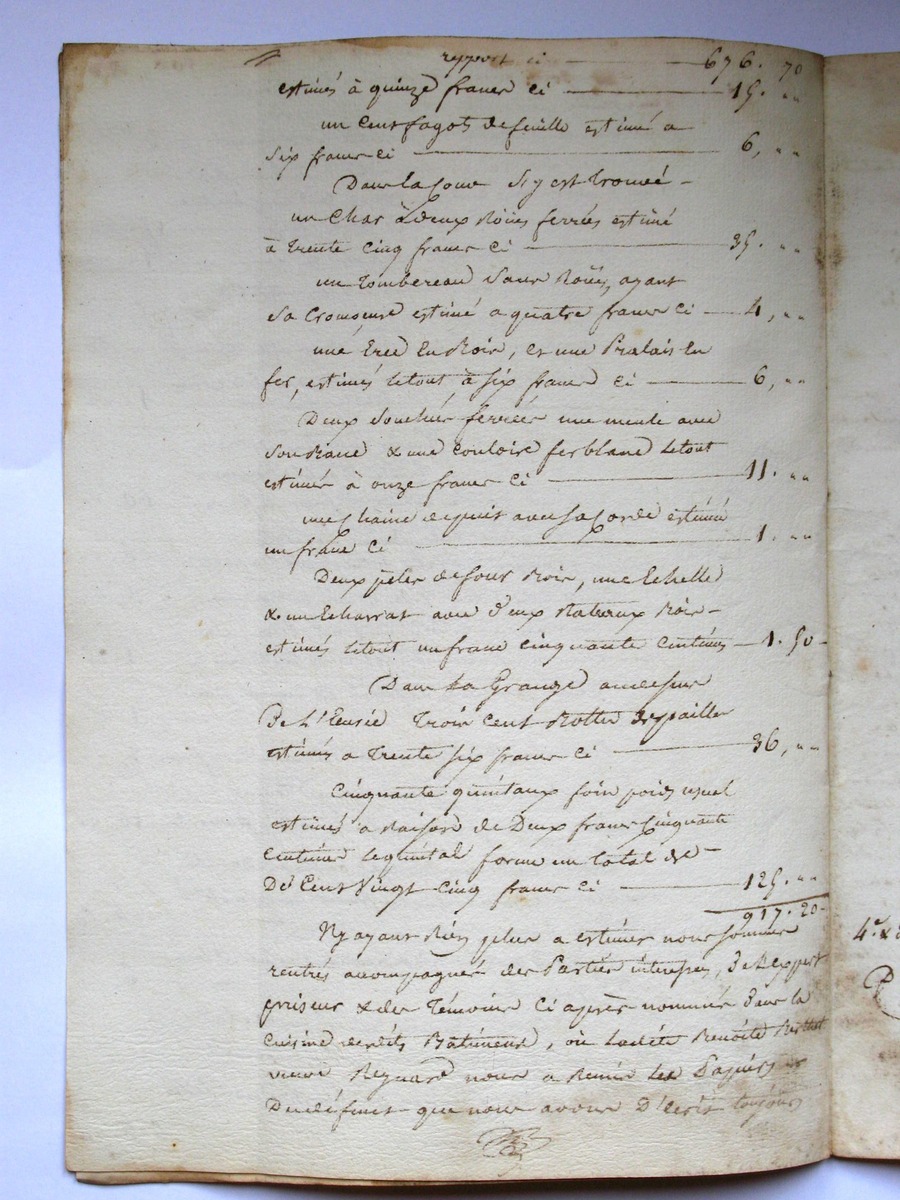 report ci — 676. 70
estimés à quinze francs ci — 15. "
un cent fagots de feuille estimé a
six francs ci — 6, "
Dans la Cour s'y est trouvé -
un Char à deux Roües ferrées estimé
à trente cinq francs ci — 35. "
un tombereau sans Roües, ayant
sa estimé a quatre francs ci — 4, "
une en Bois, et une en
fer, estimés le tout à six francs ci — 6, "
Deux ferrées une meule avec
son & une couloire ferblanc le tout
estimés à onze francs ci — 11. "
une chaine de puit avec sa Corde estimé
un franc ci — 1. "
Deux péles de four Bois, une Echelle
& un avec deux Bois -
estimés le tout un franc cinquante centimes — 1. 50 -
Dans la Grange au dessus
De L'Ecurie Trois Cent Bottes de paille
estimés a trente six francs ci — 36, "
Cinquante quintaux foin poids usuel
estimés a Raison de Deux francs Cinquante
centimes le quintal forme un total de -
De Cent Vingt Cinq francs ci — 125. "
917. 20 -
N'y ayant Rien plus a estimer nous sommes
rentrés accompagnés des Parties interessés, de L'expert
priseur & des Témoins ci après nommés dans la
cuisine desdits Batiments, où ladite Benoite
veuve nous a Remis les Papiers
Du deffunt que nous avons toujours
4e